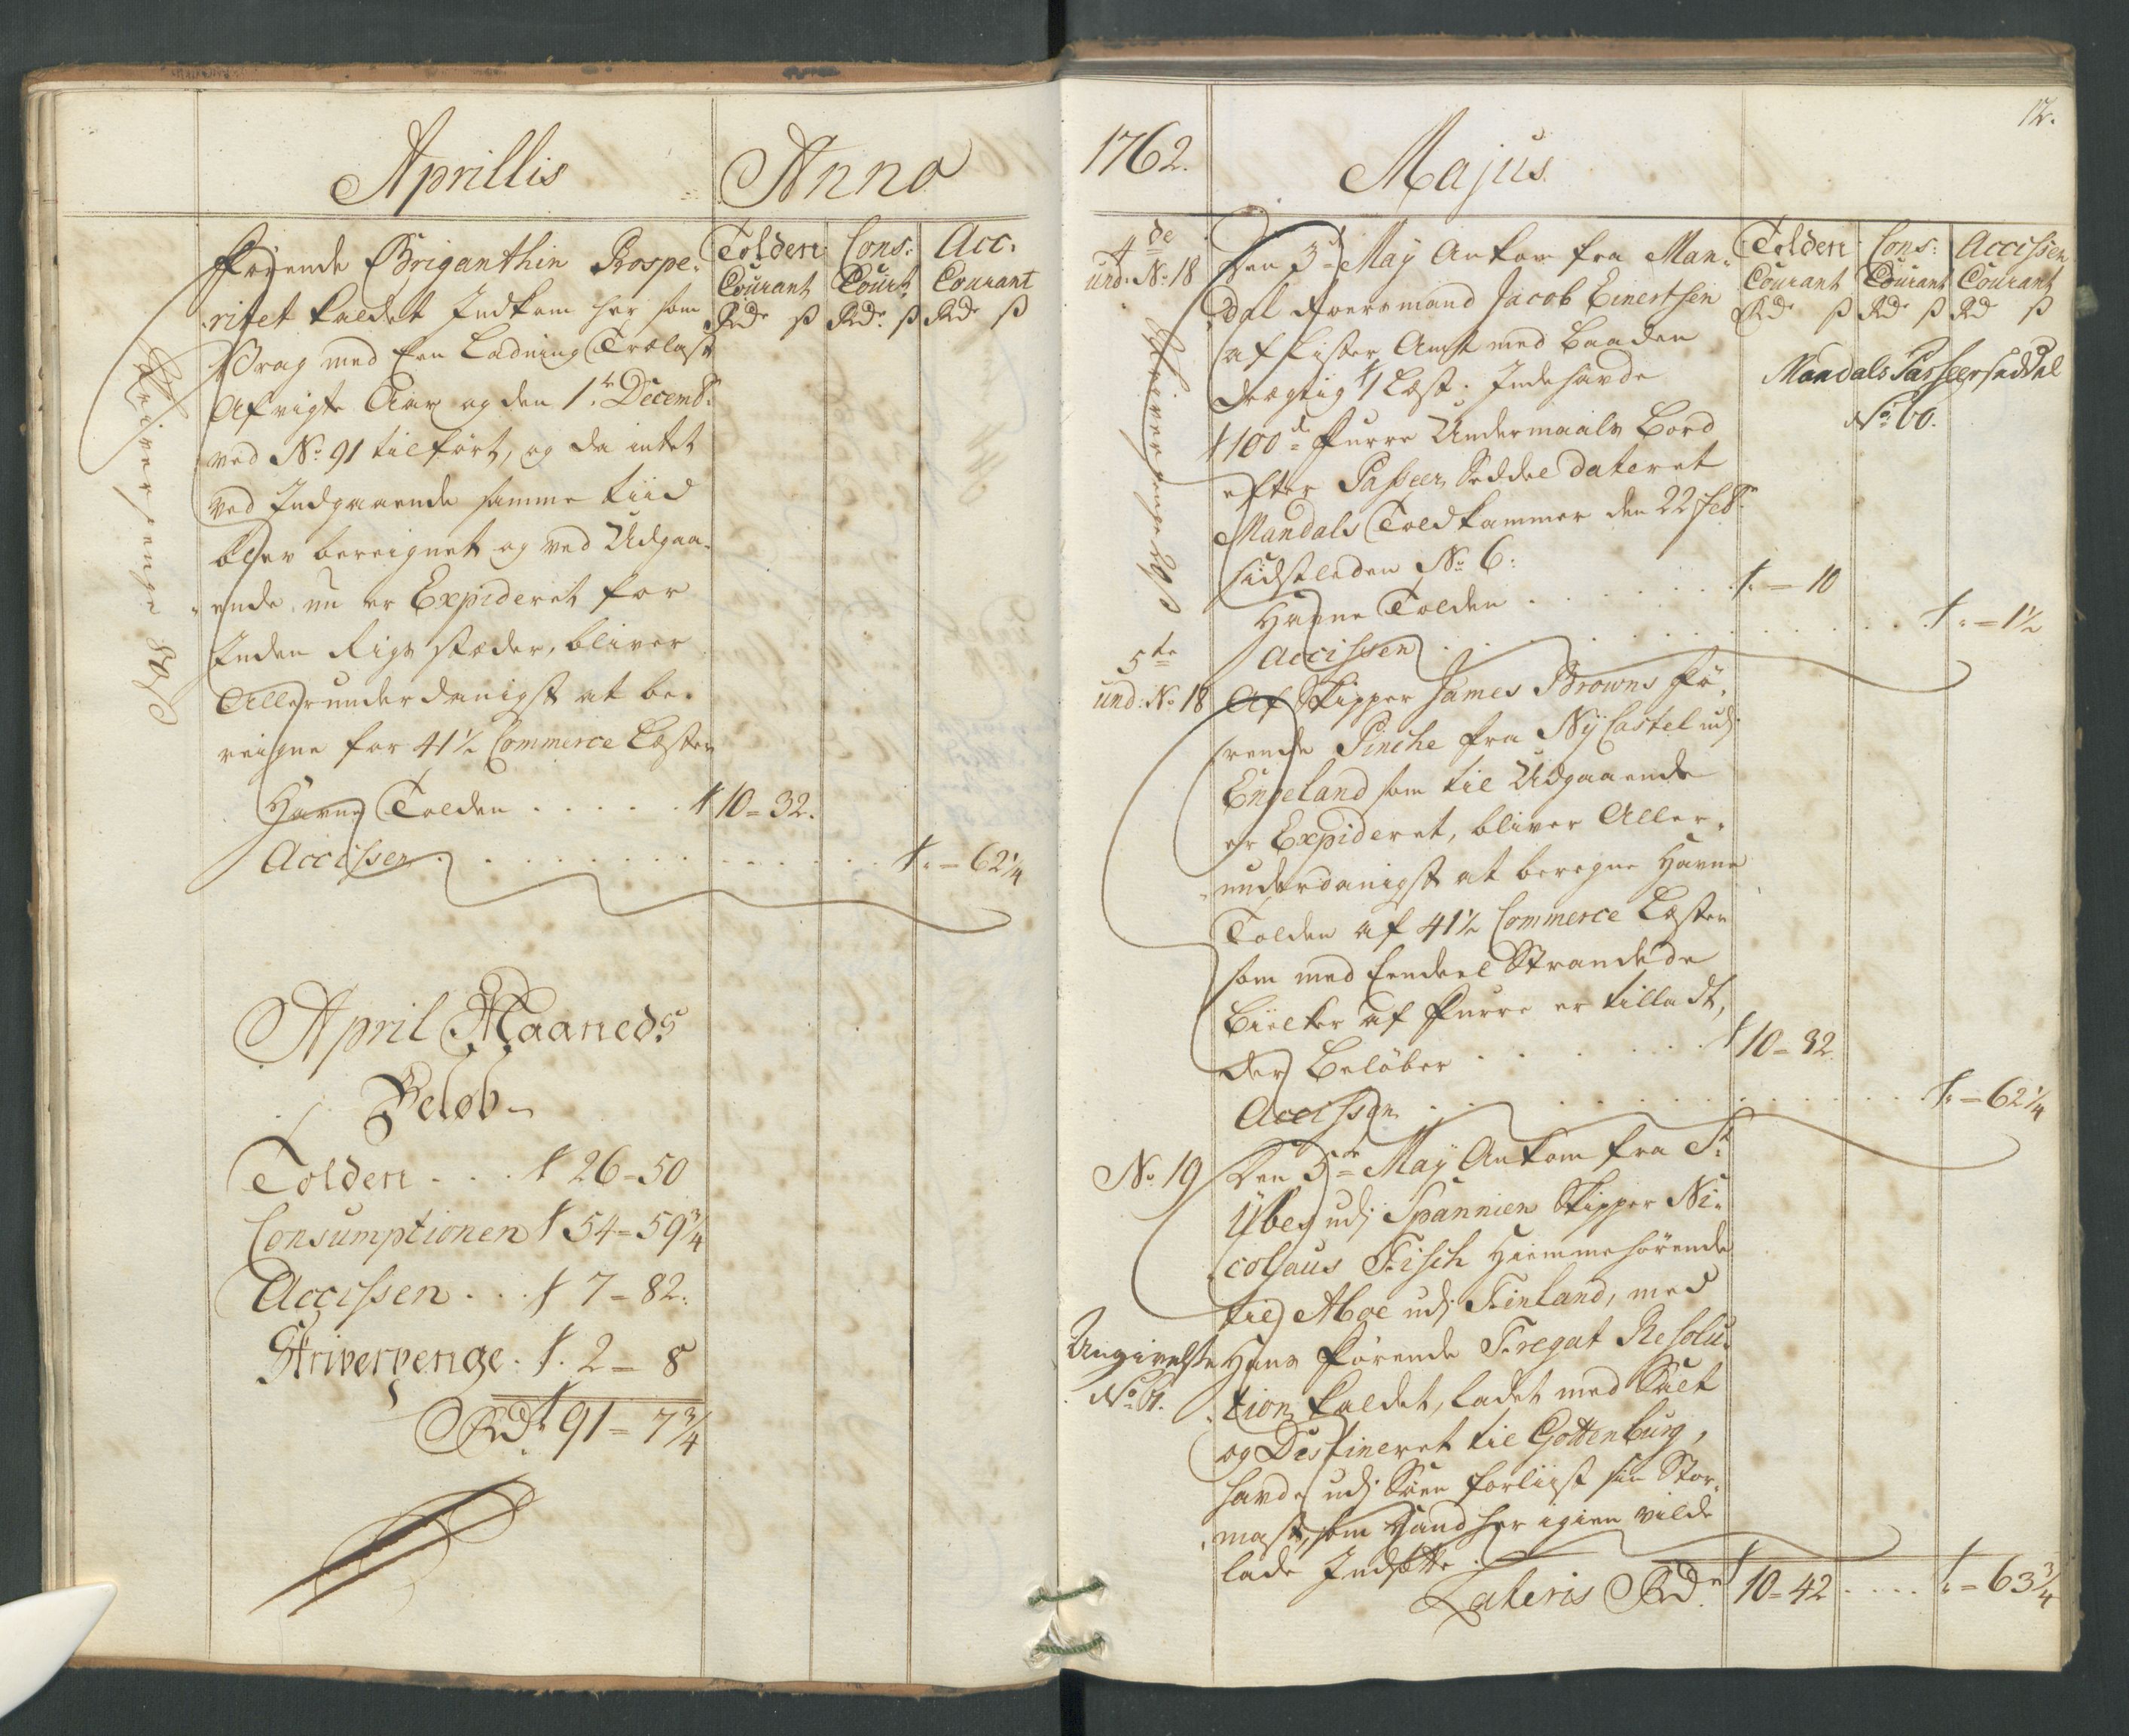 Aprillis Anno
Tolden Cons: Acc:
Courant Court Courant
Rdr ß Rdr ß Rdr ß
Førende Briganthin Prospe-
ritet kaldet Indkom her som
Vrag med sin Ladning Trælast
afvigte Aar og den 1te Decembr:
ved No 91 tilført, og da intet
ved Indgaaende samme tiid
blev bereignet og ved Udgaa-
ende nu er Expideret for
Inden Rigs stæder, bliver
Allerunderdanigst at be-
reigne for 41½ Commerce Læster
Havne Tolden . . . . . 10 = 32.
Accissen . . . . . = 62¼
Skriverpenge 20 ß
April Maaneds
Beløb
Tolden . . . 26 = 50
Consumptionen 54 = 59¾
Accissen . . . 7 = 82.
Skriverpenge . 2 = 8
Rdr 91 = 7¾
1762. Majus
12.
Tolden Cons: Accissen
Courant Courant Courant
Rdr ß Rdr ß Rd ß
4de
und: No 18
Den 3de May Ankom fra Man-
dal Foermand Jacob Einertsen
af Lister Amt med Baaden
drægtig 1 Læst. Indehavde
100de Furre Undermaals Bord
efter Passeer Seddel dateret
Mandals Toldkammer den 22 Febr:
sidstleden No 6:
Mandals Passeerseddel
No: 60.
Havne Tolden . . . . . = 10
Accissen . . . . . = 1½
Skriverpenge 20 ß
5te
und: No 18
Af Skipper James Browns fø-
rende Pinche fra Ny Castel udj
Engeland som til Udgaaende
er Expideret, bliver Aller-
underdanigst at beregne Havne
Tolden af 41½ Commerce Læster
som med Eendeel Strandede
Biælker af Furre er tilladt,
der Beløber . . . . . 10 = 32
Accissen . . . . . = 62¼
No 19
Den 5te May Ankom fra St
Ybes udj Spannien Skipper Ni-
colaus Fisch Hiemmehørende
til Aboe udj Finland, med
Angivelse
Hans førende Fregat Resolu-
tion kaldet, ladet med Salt
og Destineret til Gottenburg,
havde udj Søen forliist sin Stor-
mast, som Hand her igien vilde
lade Indsætte.
Lateris Rdr 10 = 42 . . . . = 63¾